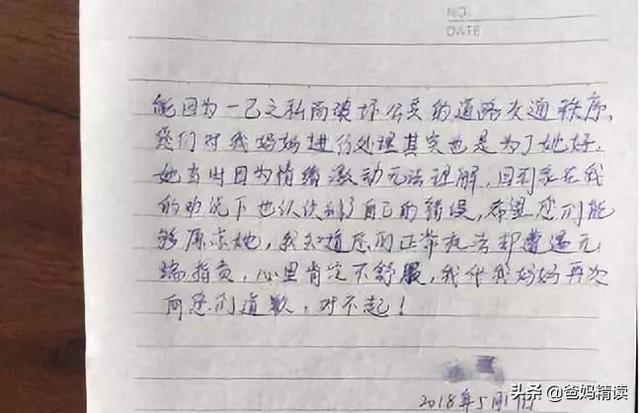 NO
DATE
能因为一己之私而破坏公共的道路交通秩序,
您们对我妈妈进行处理其实也是为了她好.
她当时因为情绪激动无法理解,回到家在我
的劝说下也认识到了自己的错误,希望您们能
够原谅她,我知道您们正常执法却遭遇无
端指责,心里肯定不舒服,我代我妈妈再次
向您们道歉,对不起!
2018年5月1日
头条 @爸妈精读